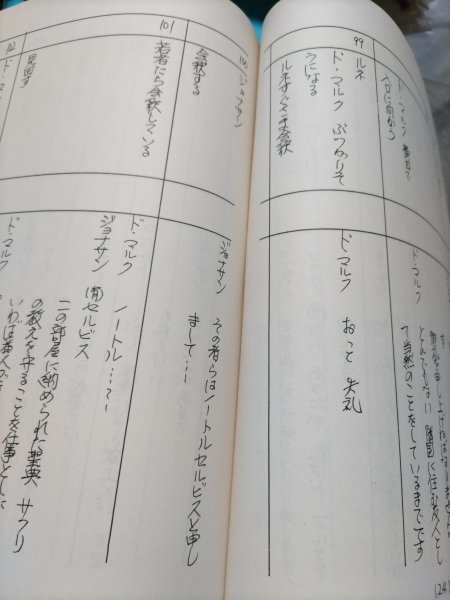 ド・マルク
入口に向かう
ド・マルク
す
とんでもない 隣国に住む友人とし
て当然のことをしているまでです
99
ルネ
ド・マルク ぶつかりそ
うになる
ルネすっと会釈
ド・マルク おっと 失礼
100
ジョナサン
会釈する
ジョナサン その者らはノートルセルビスと申し
まして…
101
若者たち会釈している
ド・マルク ノートル…?
ジョナサン (有)セルビス
この部屋に納められた聖典 サフリ
の教えを守ることを仕事とし
いわば番人で
見回す
ド・マルク
(24)